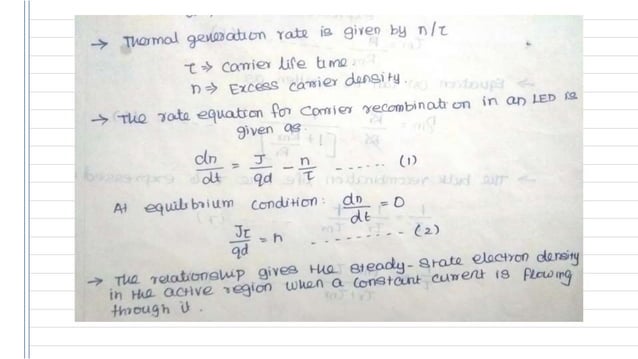 → Thermal generation rate is given by n/τ
τ ⇒ carrier life time.
n ⇒ Excess carrier density.
→ The rate equation for carrier recombination in an LED is
given as.
dn/dt = J/qd - n/τ ...... (1)
At equilibrium condition: dn/dt = 0
Jτ/qd = n ......... (2)
→ The relationship gives the steady-state electron density
in the active region when a constant current is flowing
through it.